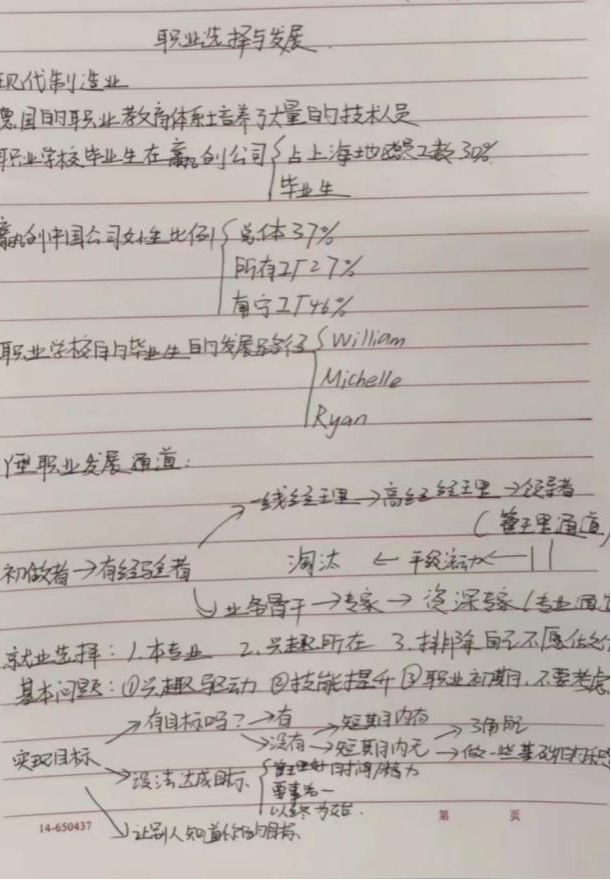 职业选择与发展.
现代制造业
德国的职业教育体系培养了大量的技术人员
职业学校毕业生在赢创公司{占上海地区员工数30%
毕业生
赢创中国公司女生比例{总体37%
所有工厂27%
南宁工厂46%
职业学校的毕业生的发展路径{William
Michelle
Ryan
Y型职业发展通道:
一线经理→高级经理→领导者
(管理通道)
初做者→有经验者
淘汰 ← 平级流动←
业务骨干→专家→资深专家(专业通
就业选择:1.本专业 2.兴趣所在 3.排除自己不愿
基本问题:①兴趣驱动 ②技能提升 ③职业初期,不要考虑
→有目标吗?→有→短期内有→
实现目标
→没有→短期内无→做一些基础
→设法达成目标{管理好时间/精力
要事第一
以终为始.
→让别人知道你的目标.
14-650437
第 页